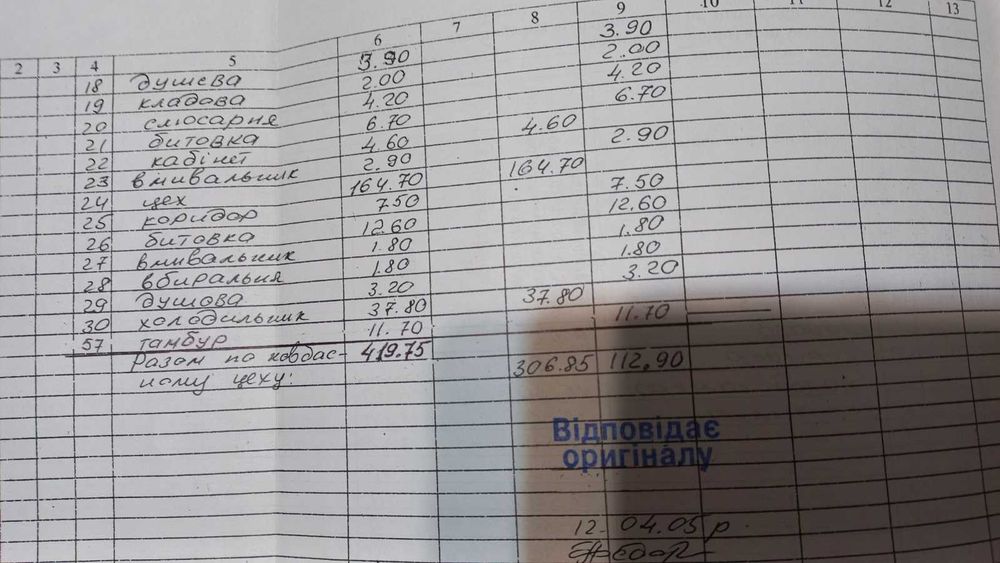 2 3 4 5 6 7 8 9 10 11 12 13
18 душева 3.90 3.90
19 кладова 2.00 2.00
20 слюсарня 4.20 4.20
21 битовка 6.70 6.70
22 кабінет 4.60 4.60
23 вмивальник 2.90 2.90
24 цех 164.70 164.70
25 коридор 7.50 7.50
26 битовка 12.60 12.60
27 вмивальник 1.80 1.80
28 вбиральня 1.80 1.80
29 душова 3.20 3.20
30 холодильник 37.80 37.80
57 тамбур 11.70 11.70
Разом по ковбас- 419.75 306.85 112.90
ному цеху:
Відповідає
оригіналу
12. 04.05 р